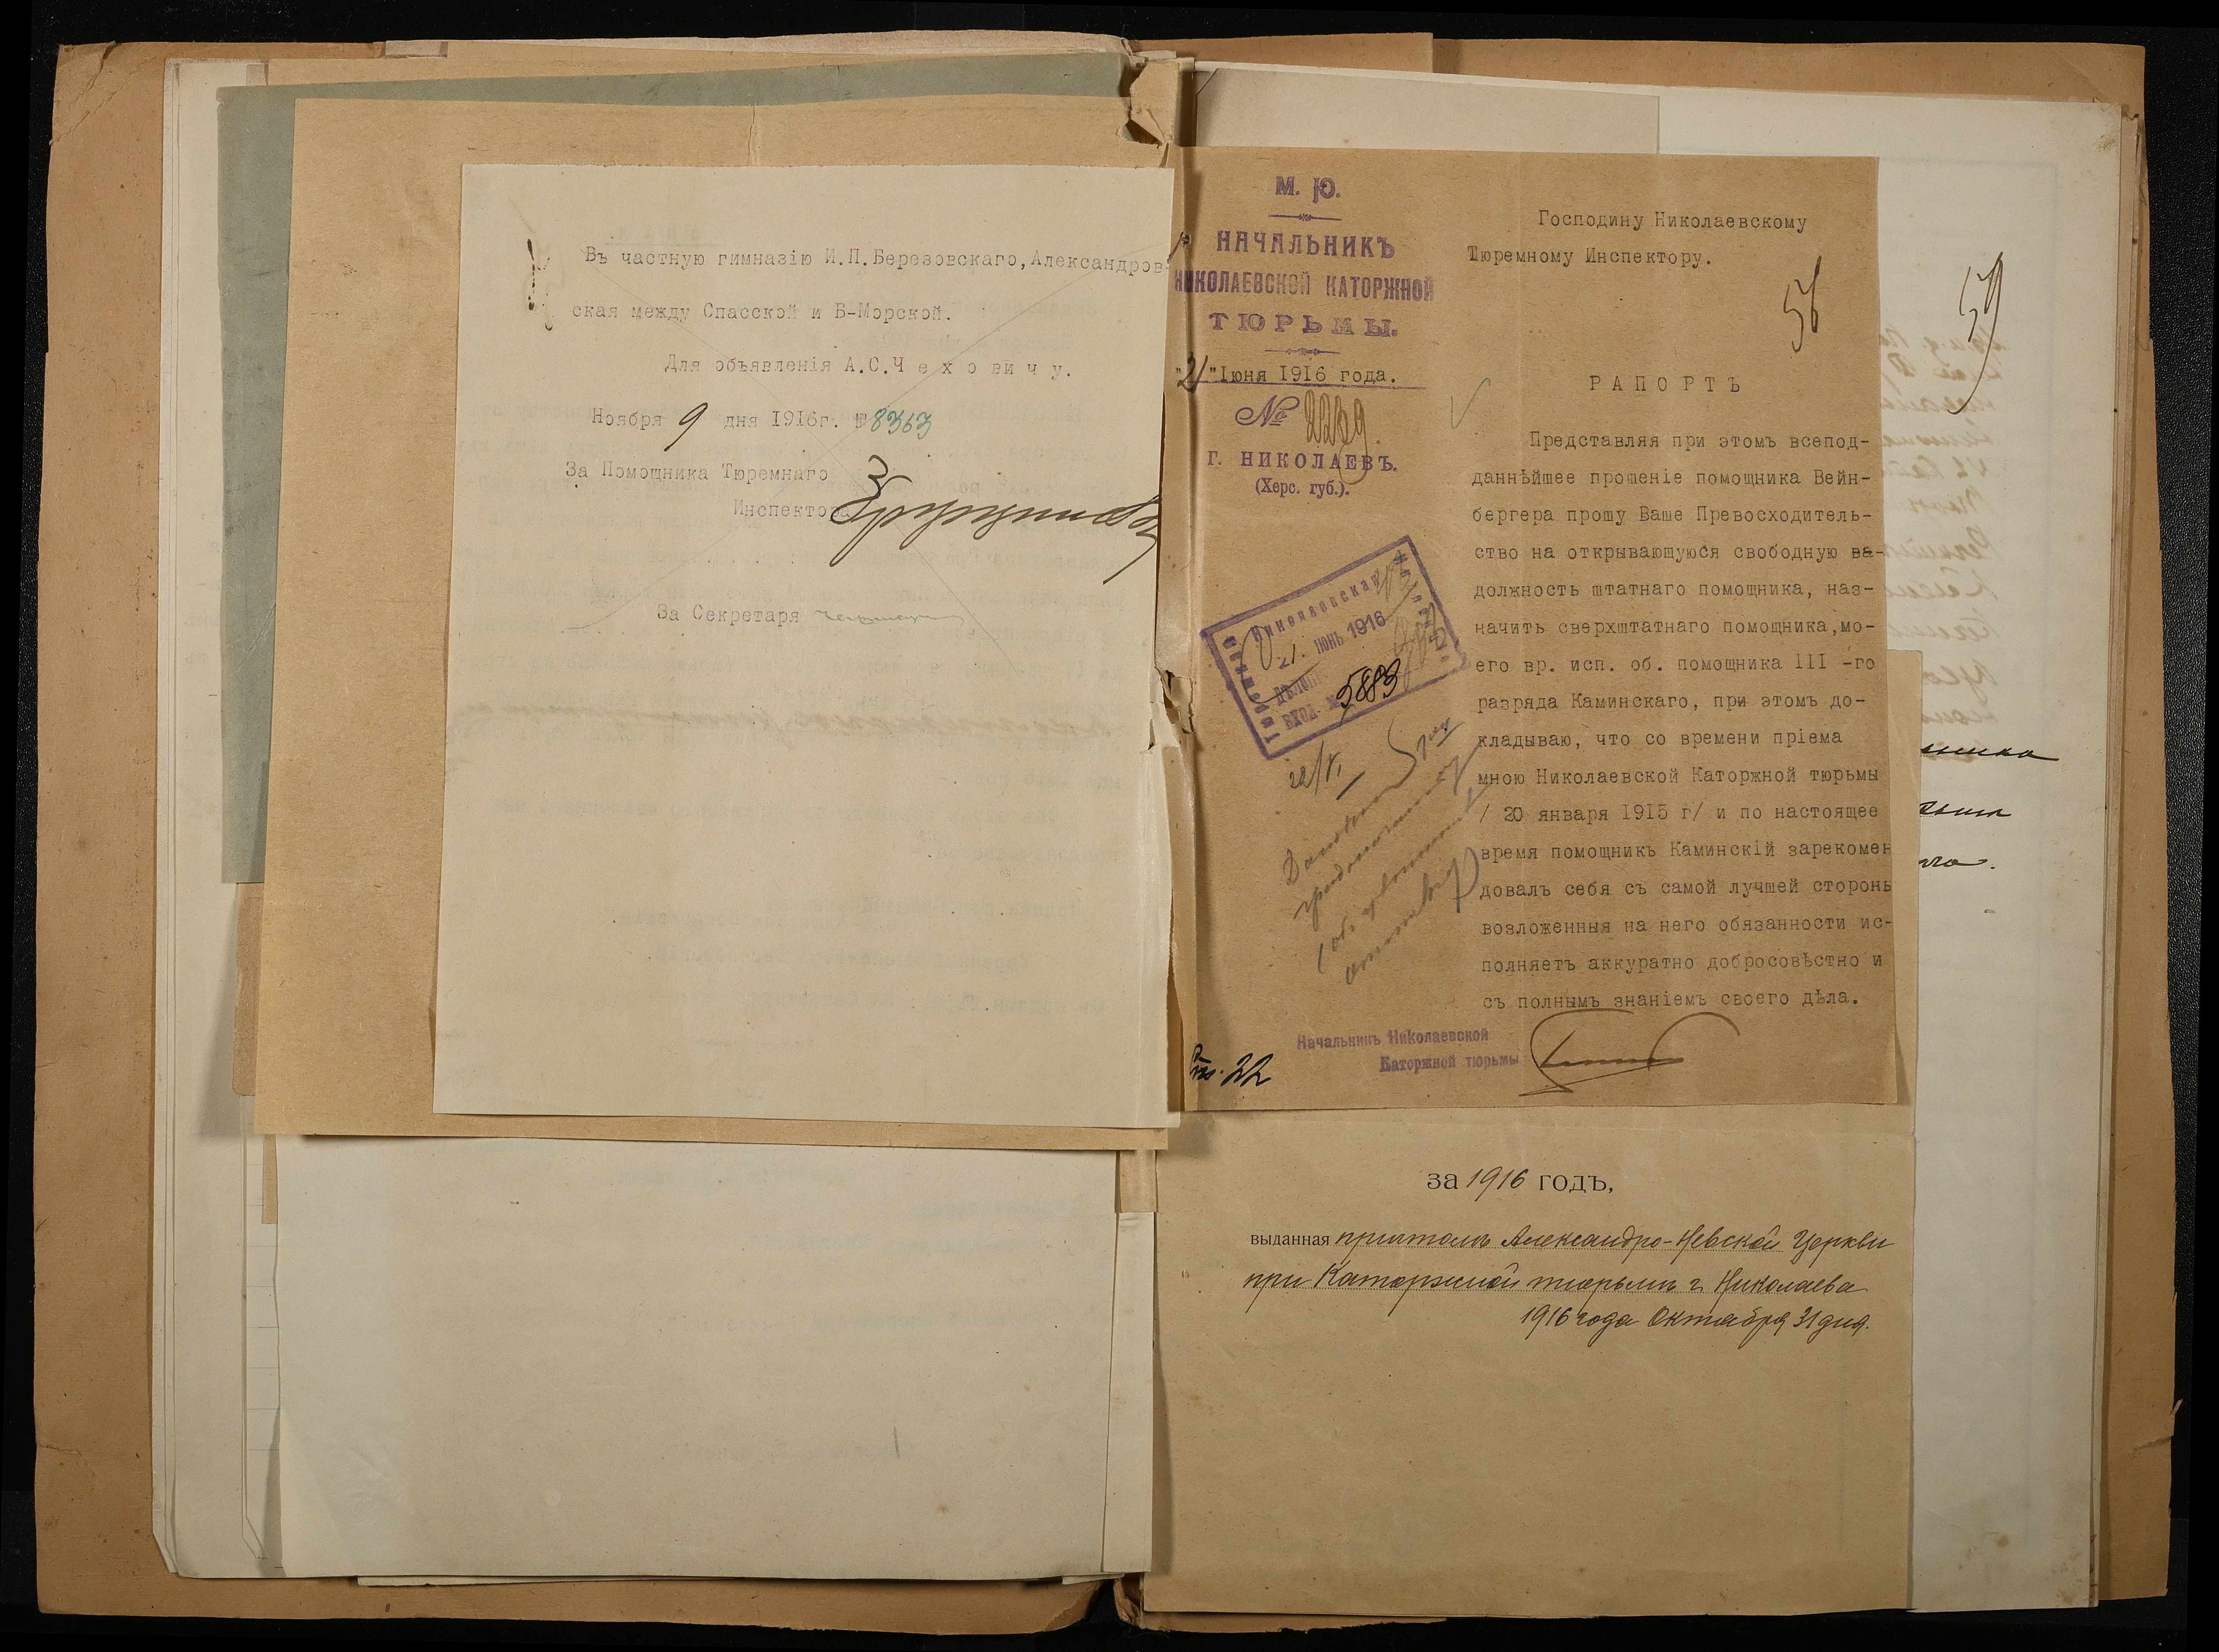 Въ частную гимназію И.П.Березовскаго, Александров-
ская между Спасской и Б-Морской.
Для объявленія А.С.Ч е х о в и ч у.
Ноября 9 дня 1916г. № 8363
За Помощника Тюремнаго
Инспектора
За Секретаря
М. Ю.
НАЧАЛЬНИКЪ
НИКОЛАЕВСКОЙ КАТОРЖНОЙ
ТЮРЬМЫ.
"21" Іюня 1916 года.
№ 2239.
Г. НИКОЛАЕВЪ.
(Херс. губ.).
Николаевская
21. ІЮНЬ 1916
ВХОД. № 5883
Господину Николаевскому
Тюремному Инспектору.
56
59
Р А П О Р Т Ъ
Представляя при этомъ всепод-
даннѣйшее прошеніе помощника Вейн-
бергера прошу Ваше Превосходитель-
ство на открывающуюся свободную ва-
должность штатнаго помощника, наз-
начить сверхштатнаго помощника,мо-
его вр. исп. об. помощника III -го
разряда Каминскаго, при этомъ до-
кладываю, что со времени пріема
мною Николаевской Каторжной тюрьмы
/ 20 января 1915 г/ и по настоящее
время помощникъ Каминскій зарекомен
довалъ себя съ самой лучшей стороны
возложенныя на него обязанности ис-
полняетъ аккуратно добросовѣстно и
съ полнымъ знаніемъ своего дѣла.
Начальникъ Николаевской
Каторжной тюрьмы
22
за 1916 годъ,
выданная причтомъ Александро-Невской Церкви
при Каторжной тюрьмѣ г. Николаева
1916 года Октября 31 дня.